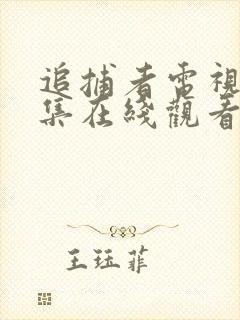 追捕者電視
集在綫觀看
王珏菲